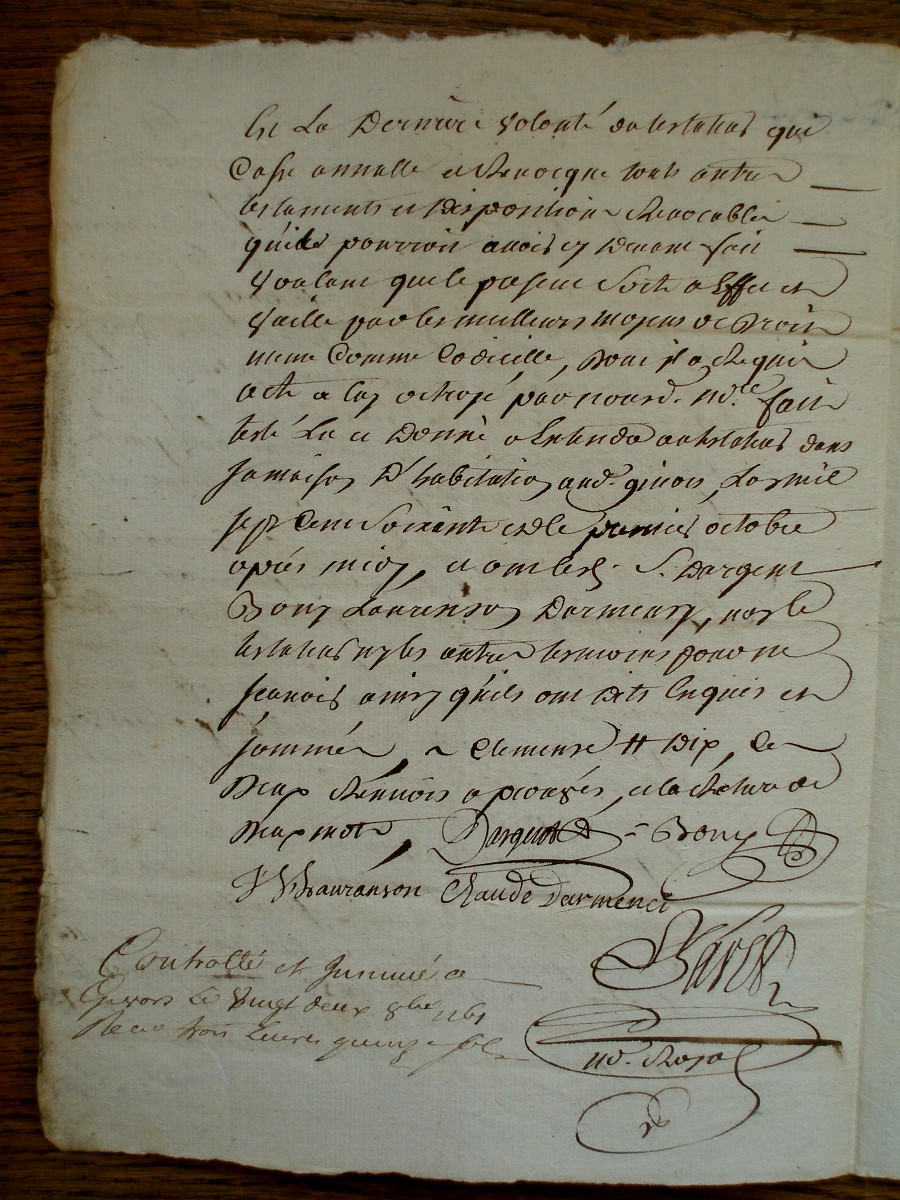 Et La Derniere volonté du testateur qui
Casse annulle et Revocque touts autres
testaments et Dispositions Revocables
quil pourroit avoir cy Devant fait
voulant que le present Sorte a Effet et
vaille par les meilleurs moyens de Droit
meme Comme Codicille, Dont il a Requis
acte a luy octroyé par nousd. no.re fait
testé Lu et Donné a Entendre au testateur dans
sa maison D'habitation aud. givors, Lan mil
sept Cent Soixante et le premier octobre
aprés midy, et ont lesd. Srs. Dargent
Bony Lauranson Darmency, non le
testateur ny les autres temoins pour ne
scavoir ainsy qu'ils ont dits Enquis et
sommés, Dix, de
Deux Renvois aprouvés, et la Rature de
Deux mots, Bony
Lauranson Claude Darmenci
no. Royal
Controllé et Insinué a
Givors Le vingt deux 8bre 1761
Recu trois Livres quinze sols